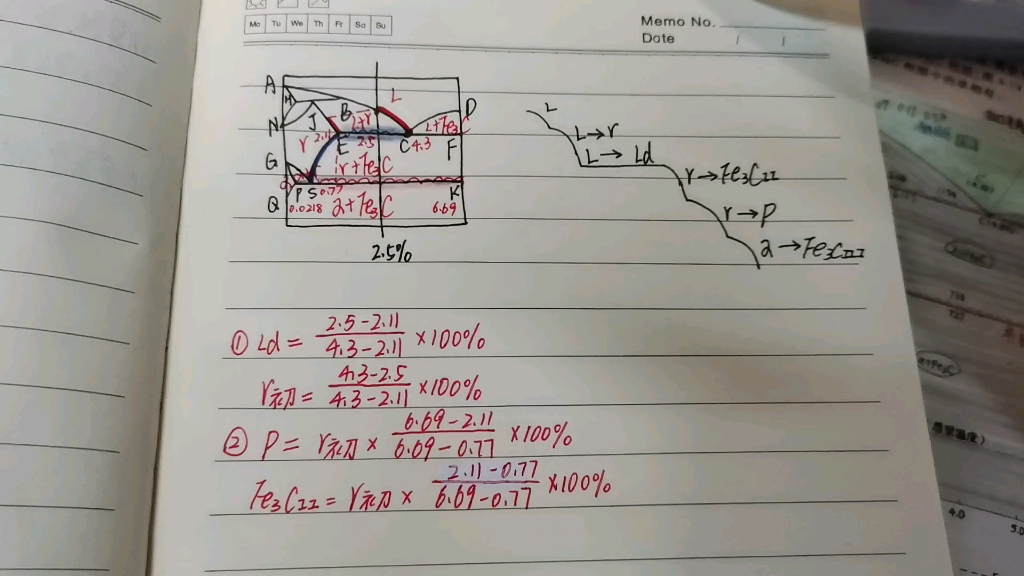 Mo Tu We Th Fr Sa Su
Memo No.
Date / /
A
H
N
J
B
L
D
L+r
L+Fe3C
r
2.11
E
2.5
C
4.3
F
G
r+Fe3C
P
S
0.77
K
Q
0.0218
2+Fe3C
6.69
2.5%
L
L→r
L→Ld
r→Fe3CII
r→P
2→Fe3CIII
① Ld = 2.5-2.11 / 4.3-2.11 ×100%
r初 = 4.3-2.5 / 4.3-2.11 ×100%
② P = r初 × 6.69-2.11 / 6.69-0.77 ×100%
Fe3CII = r初 × 2.11-0.77 / 6.69-0.77 ×100%
4.0
5.0